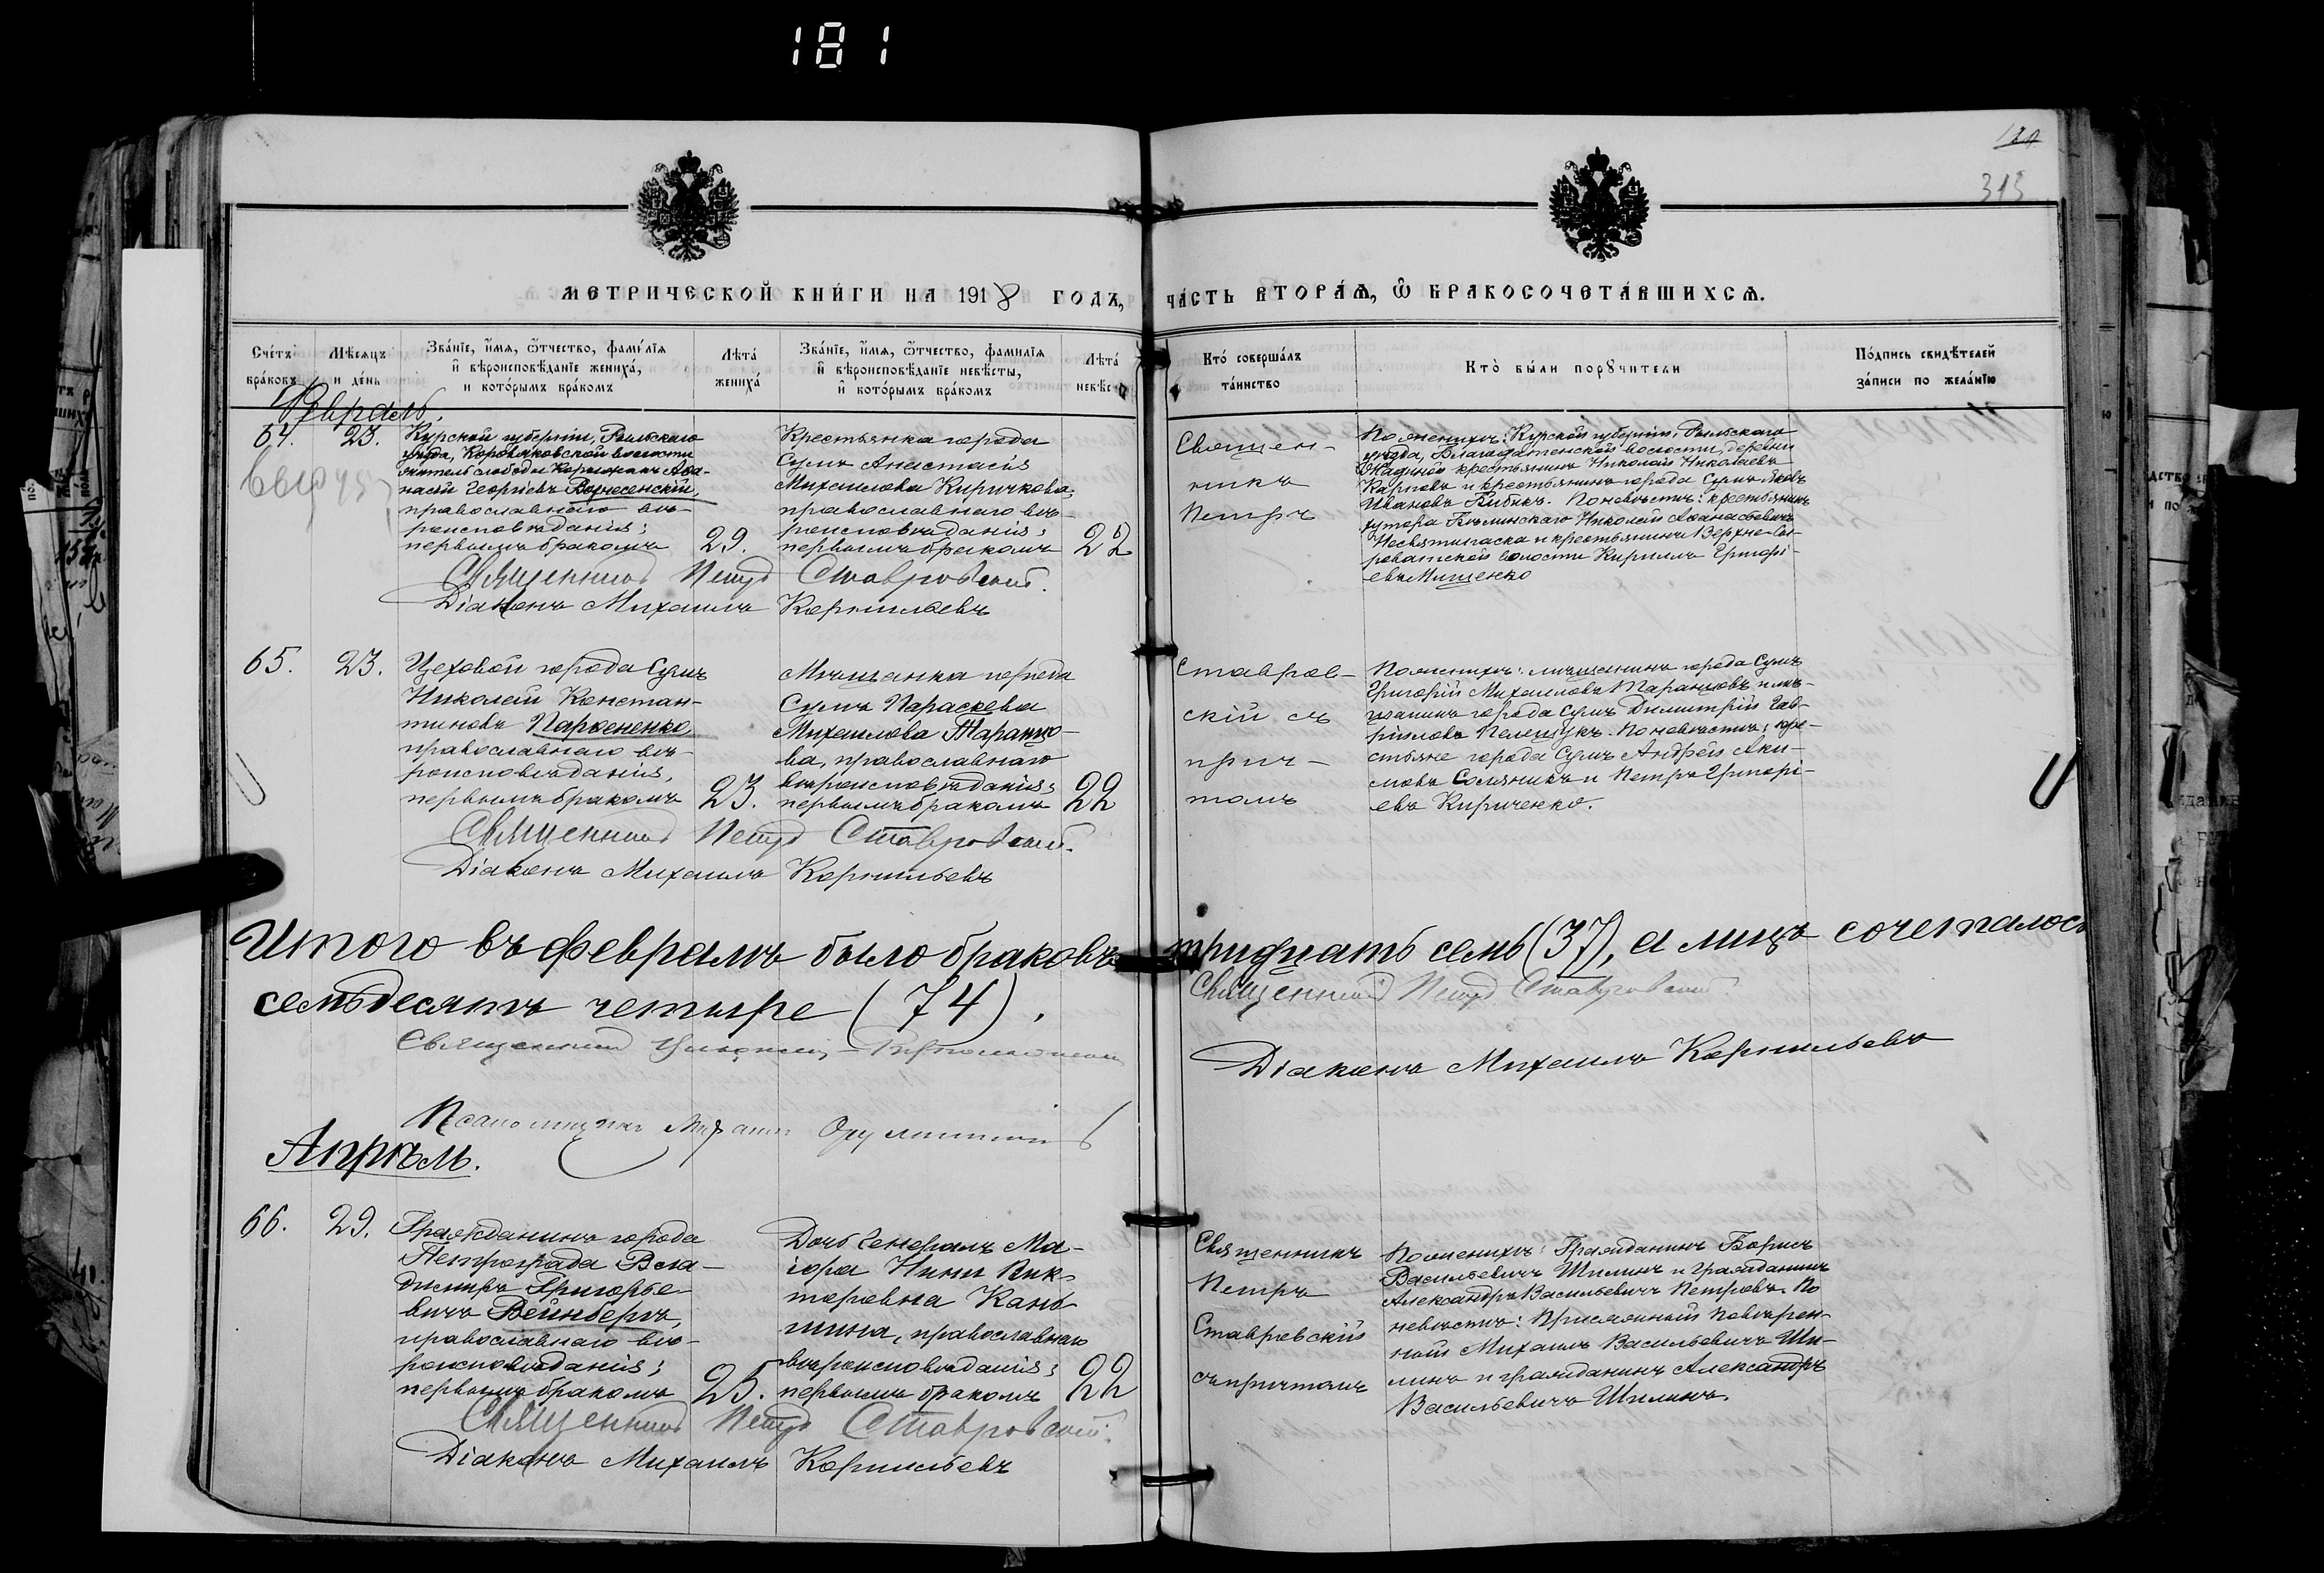 181
313
МЕТРИЧЕСКОЙ КНИ́ГИ НА 1918 ГОДЪ,
ЧА́СТЬ ВТОРА́Ѧ, Ѡ҆ БРАКОСОЧЕТА́ВШИХСѦ.
Сче́тъ бра́ковъ
Мѣ́сяцъ и де́нь
Зва́нїе, и҆́мя, ѻ҆́тчество, фами́лїя и҆ вѣроисповѣ́данїе жениха́, и кото́рымъ бра́комъ
Лѣта́ жениха́
Зва́нїе, и҆́мя, ѻ҆́тчество, фамилїя и҆ вѣроисповѣ́данїе невѣ́сты, и҆ кото́рымъ бра́комъ
Лѣта́ невѣ́сты
Кто́ соверша́лъ та́инство
Кто̀ бы́ли порꙋчители
По́дпись свидѣ́телей за́писи по жела́нїю
Февраль.
64. 23.
Курской губерніи, Рыльскаго
уѣзда, Коровяковской волости
житель слободы
насій Георгіевъ Вознесенскій,
православнаго вѣ-
роисповѣданія;
первымъ бракомъ
29.
Крестьянка города
Сумъ Анастасія
Михаилова Киричкова,
православнаго вѣ-
роисповѣданія;
первымъ бракомъ
22
Священ-
никъ
Петръ
По женихѣ: Курской губерніи, Рыльскаго
уѣзда, Благодатенской волости, деревни
крестьянинъ Николай Николаевъ
Карповъ и крестьянинъ города Сумъ Яковъ
Ивановъ Бибикъ. По невѣстѣ: крестьянинъ
хутора Николай Аѳанасьевичъ
и крестьянинъ Верхне-Сы-
роватской волости Кириллъ Григорі-
евъ Мищенко
Священникъ Петръ Ставровскій.
Діаконъ Михаилъ Корнильевъ
65. 23.
Цеховой города Сумъ
Николай Констан-
тиновъ Пархоменко,
православнаго вѣ-
роисповѣданія,
первымъ бракомъ
23.
Мѣщанка города
Сумъ Параскева
Михаилова Таранцо-
ва, православнаго
вѣроисповѣданія;
первымъ бракомъ
22
Ставров-
скій съ
прич-
томъ
По женихѣ: мѣщанинъ города Сумъ
Григорій Михаиловъ Таранцовъ и мѣ-
щанинъ города Сумъ Димитрій Гав-
риловъ Пелещукъ. По невѣстѣ: кре-
стьяне города Сумъ Андрей Аки-
мовъ Соляникъ и Петръ Григорі-
евъ Кириченко.
Священникъ Петръ Ставровскій.
Діаконъ Михаилъ Корнильевъ
Итого въ февралѣ было браковъ тридцать семь (37), а лицъ сочеталось
семьдесятъ четыре (74).
Священникъ Петръ Ставровскій.
Священникъ
Діаконъ Михаилъ Корнильевъ
Псаломщикъ Михаилъ
Апрѣль.
66. 29.
Гражданинъ города
Петрограда Вла-
диміръ Григорье-
вичъ Вейнбергъ,
православнаго вѣ-
роисповѣданія;
первымъ бракомъ
25.
Дочь Генералъ Ма-
іора Нина Вик-
торовна Кань-
шина, православнаго
вѣроисповѣданія;
первымъ бракомъ
22
Священникъ
Петръ
Ставровскій
съ причтомъ
По женихѣ: Гражданинъ Борисъ
Васильевичъ Шилинъ и гражданинъ
Александръ Васильевичъ Петровъ. По
невѣстѣ: Присяжный повѣрен-
ный Михаилъ Васильевичъ Ши-
линъ и гражданинъ Александръ
Васильевичъ Шилинъ.
Священникъ Петръ Ставровскій.
Діаконъ Михаилъ Корнильевъ